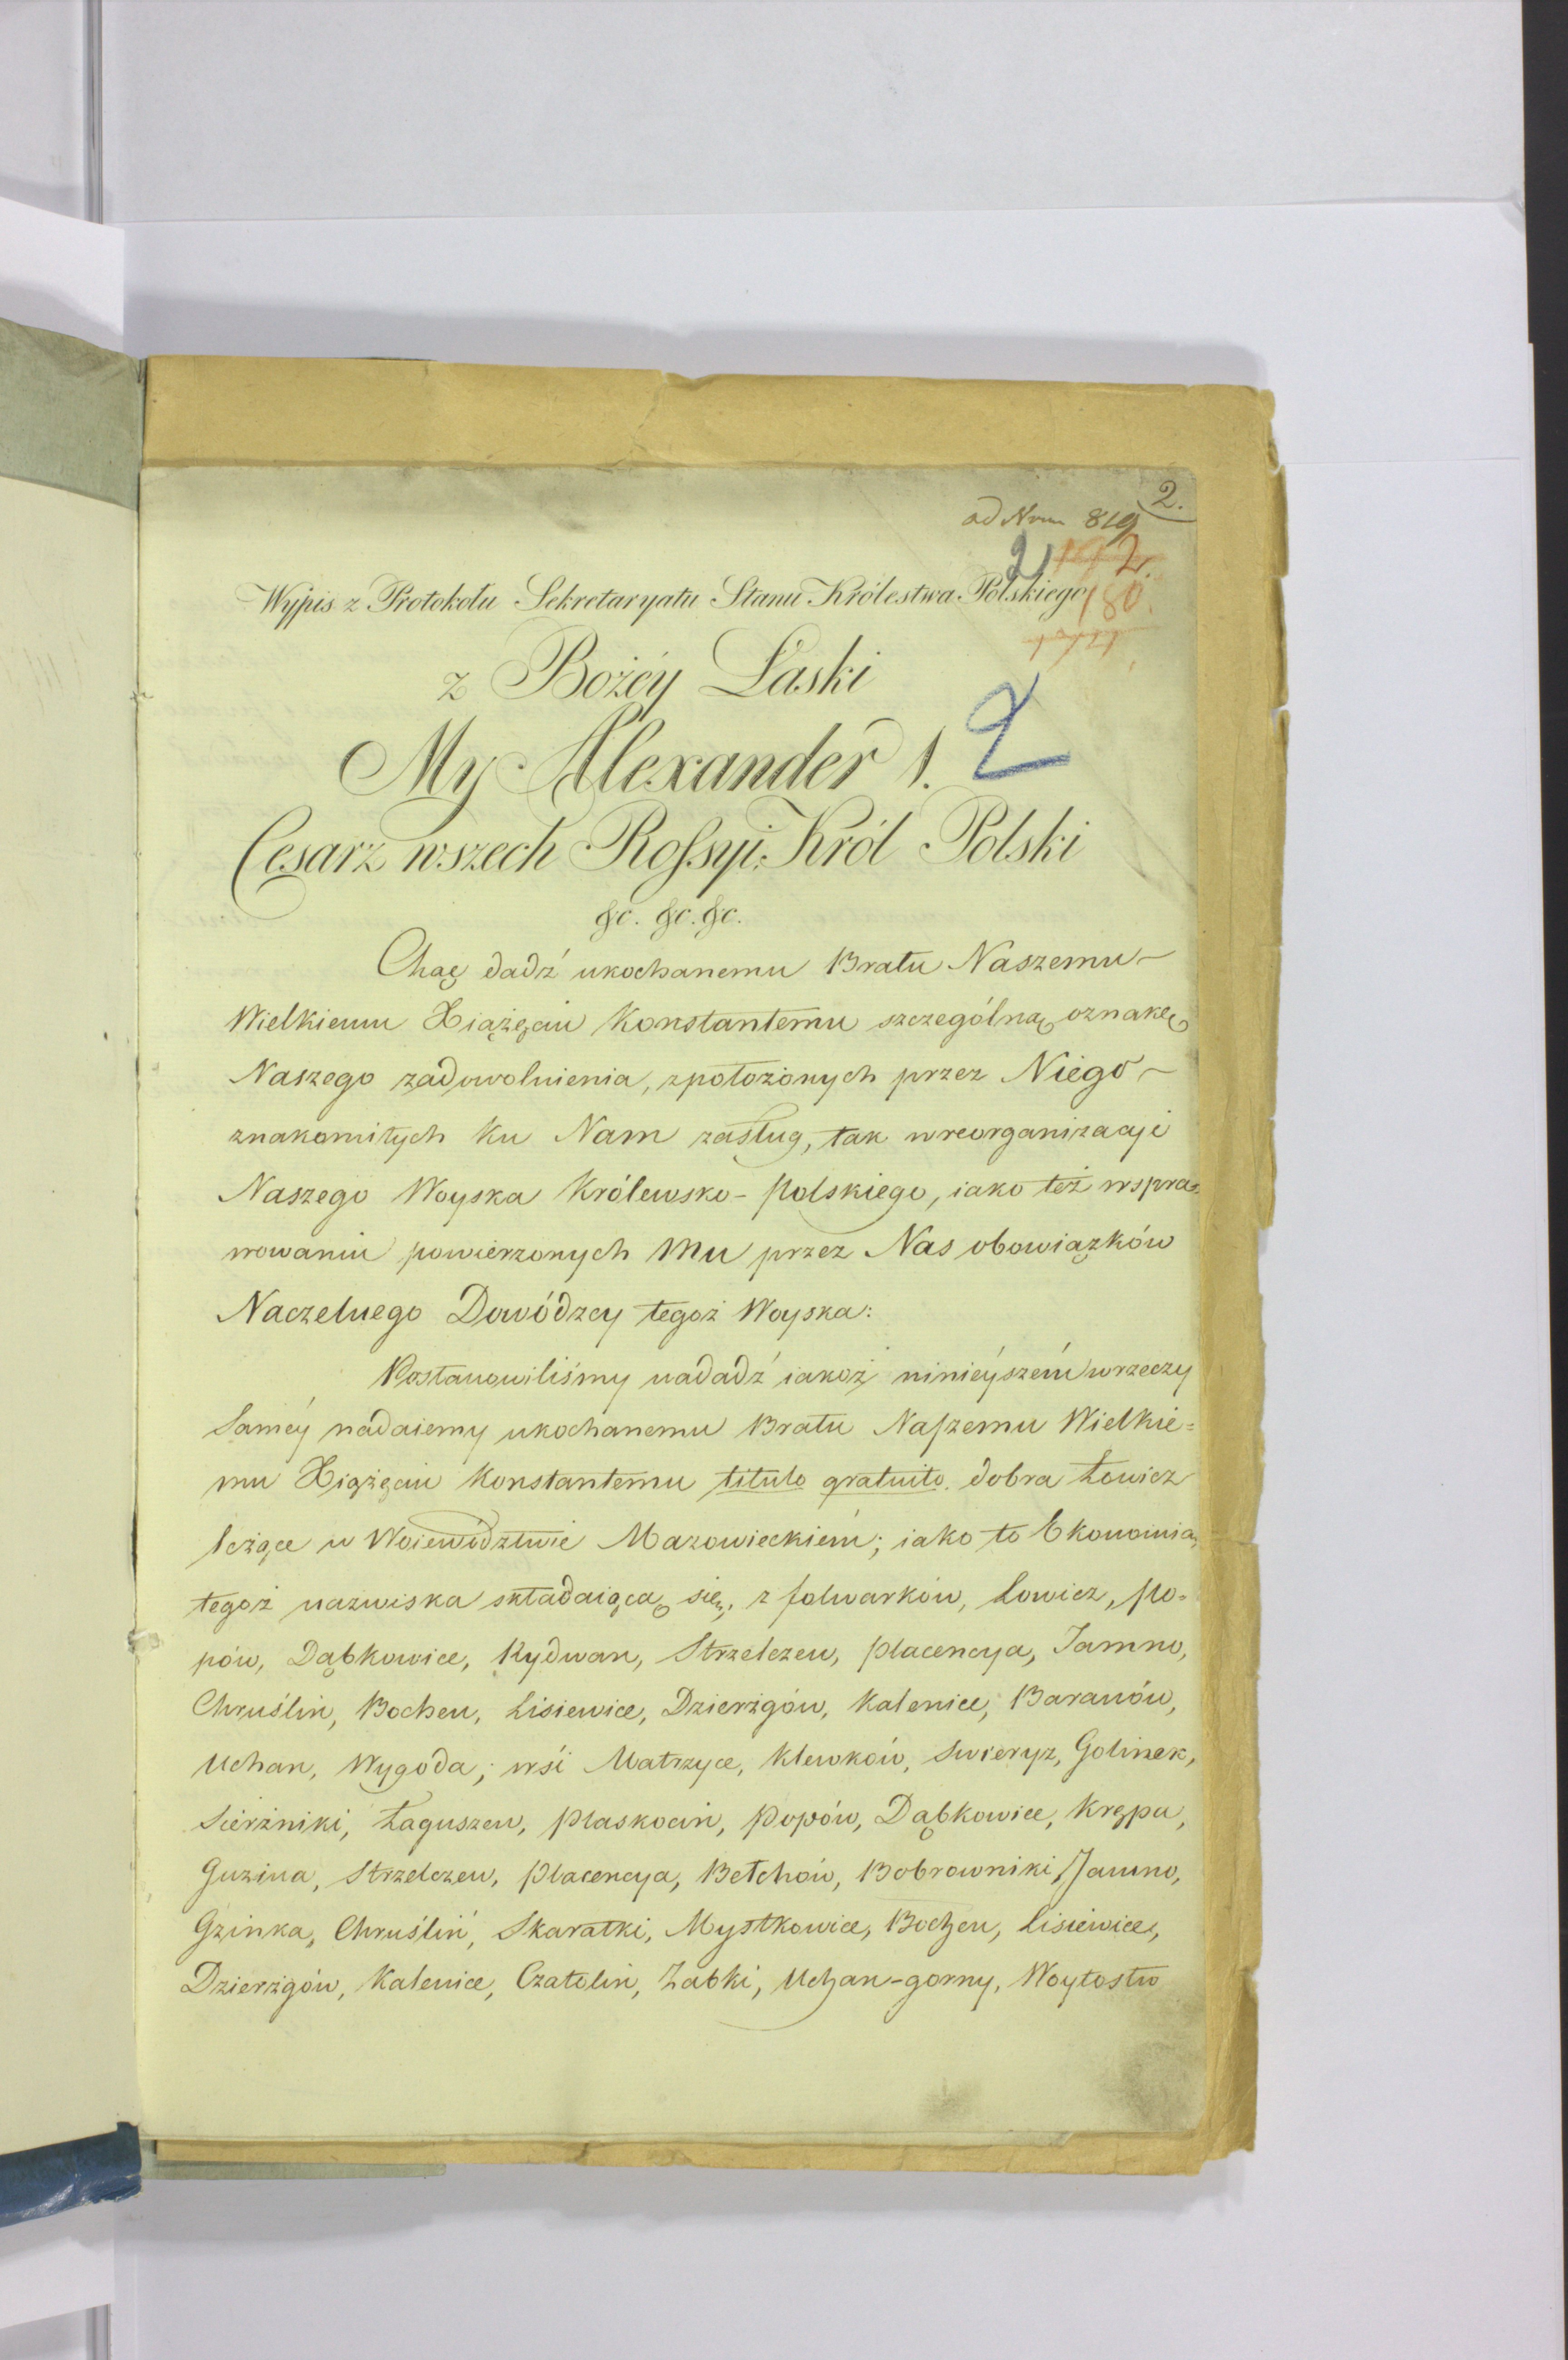 2.
ad Nrm 819
2 2.
Wypis z Protokołu Sekretaryatu Stanu Królestwa Polskiego 180.
z Bożéy Łaski
My Alexander I. 2
Cesarz wszech Rossyi, Król Polski
&c. &c. &c.
Chcąc dadź ukochanemu Bratu Naszemu
Wielkiemu Xiążęciu Konstantemu szczególną oznakę
Naszego zadowolnienia, z położonych przez Niego
znakomitych ku Nam zasług, tak w reorganizacyi
Naszego Woyska Królewsko-Polskiego, iako też w spra=
wowaniu powierzonych Mu przez Nas obowiązków
Naczelnego Dowódzcy tegoż Woyska:
Postanowiliśmy nadadź iakoż ninieyszém w rzeczy
saméy nadaiemy ukochanemu Bratu Naszemu Wielkie=
mu Xiążęciu Konstantemu titulo gratuito dobra Łowicz
leżące w Woiewództwie Mazowieckiém; iako to Ekonomią
tegoż nazwiska składaiącą się, z folwarków, Łowicz, Po=
pów, Dąbkowice, Rydwan, Strzelczew, Placencya, Jamno,
Chruślin, Bocheń, Lisiewice, Dzierzgów, Kalenice, Baranów,
Uchan, Wygoda; wśi Matrzyce, Klewków, Swieryz, Golinek,
Sierżniki, Łaguszew, Płaskocin, Popów, Dąbkowice, Krępa,
Guzina, Strzelczew, Placencya, Bełchów, Bobrowniki, Jamno,
Gzinka, Chruślin, Skaratki, Mystkowice, Bocheń, Lisiewice,
Dzierzgów, Kalenice, Czatolin, Zabki, Uchan-gorny, Woytostw